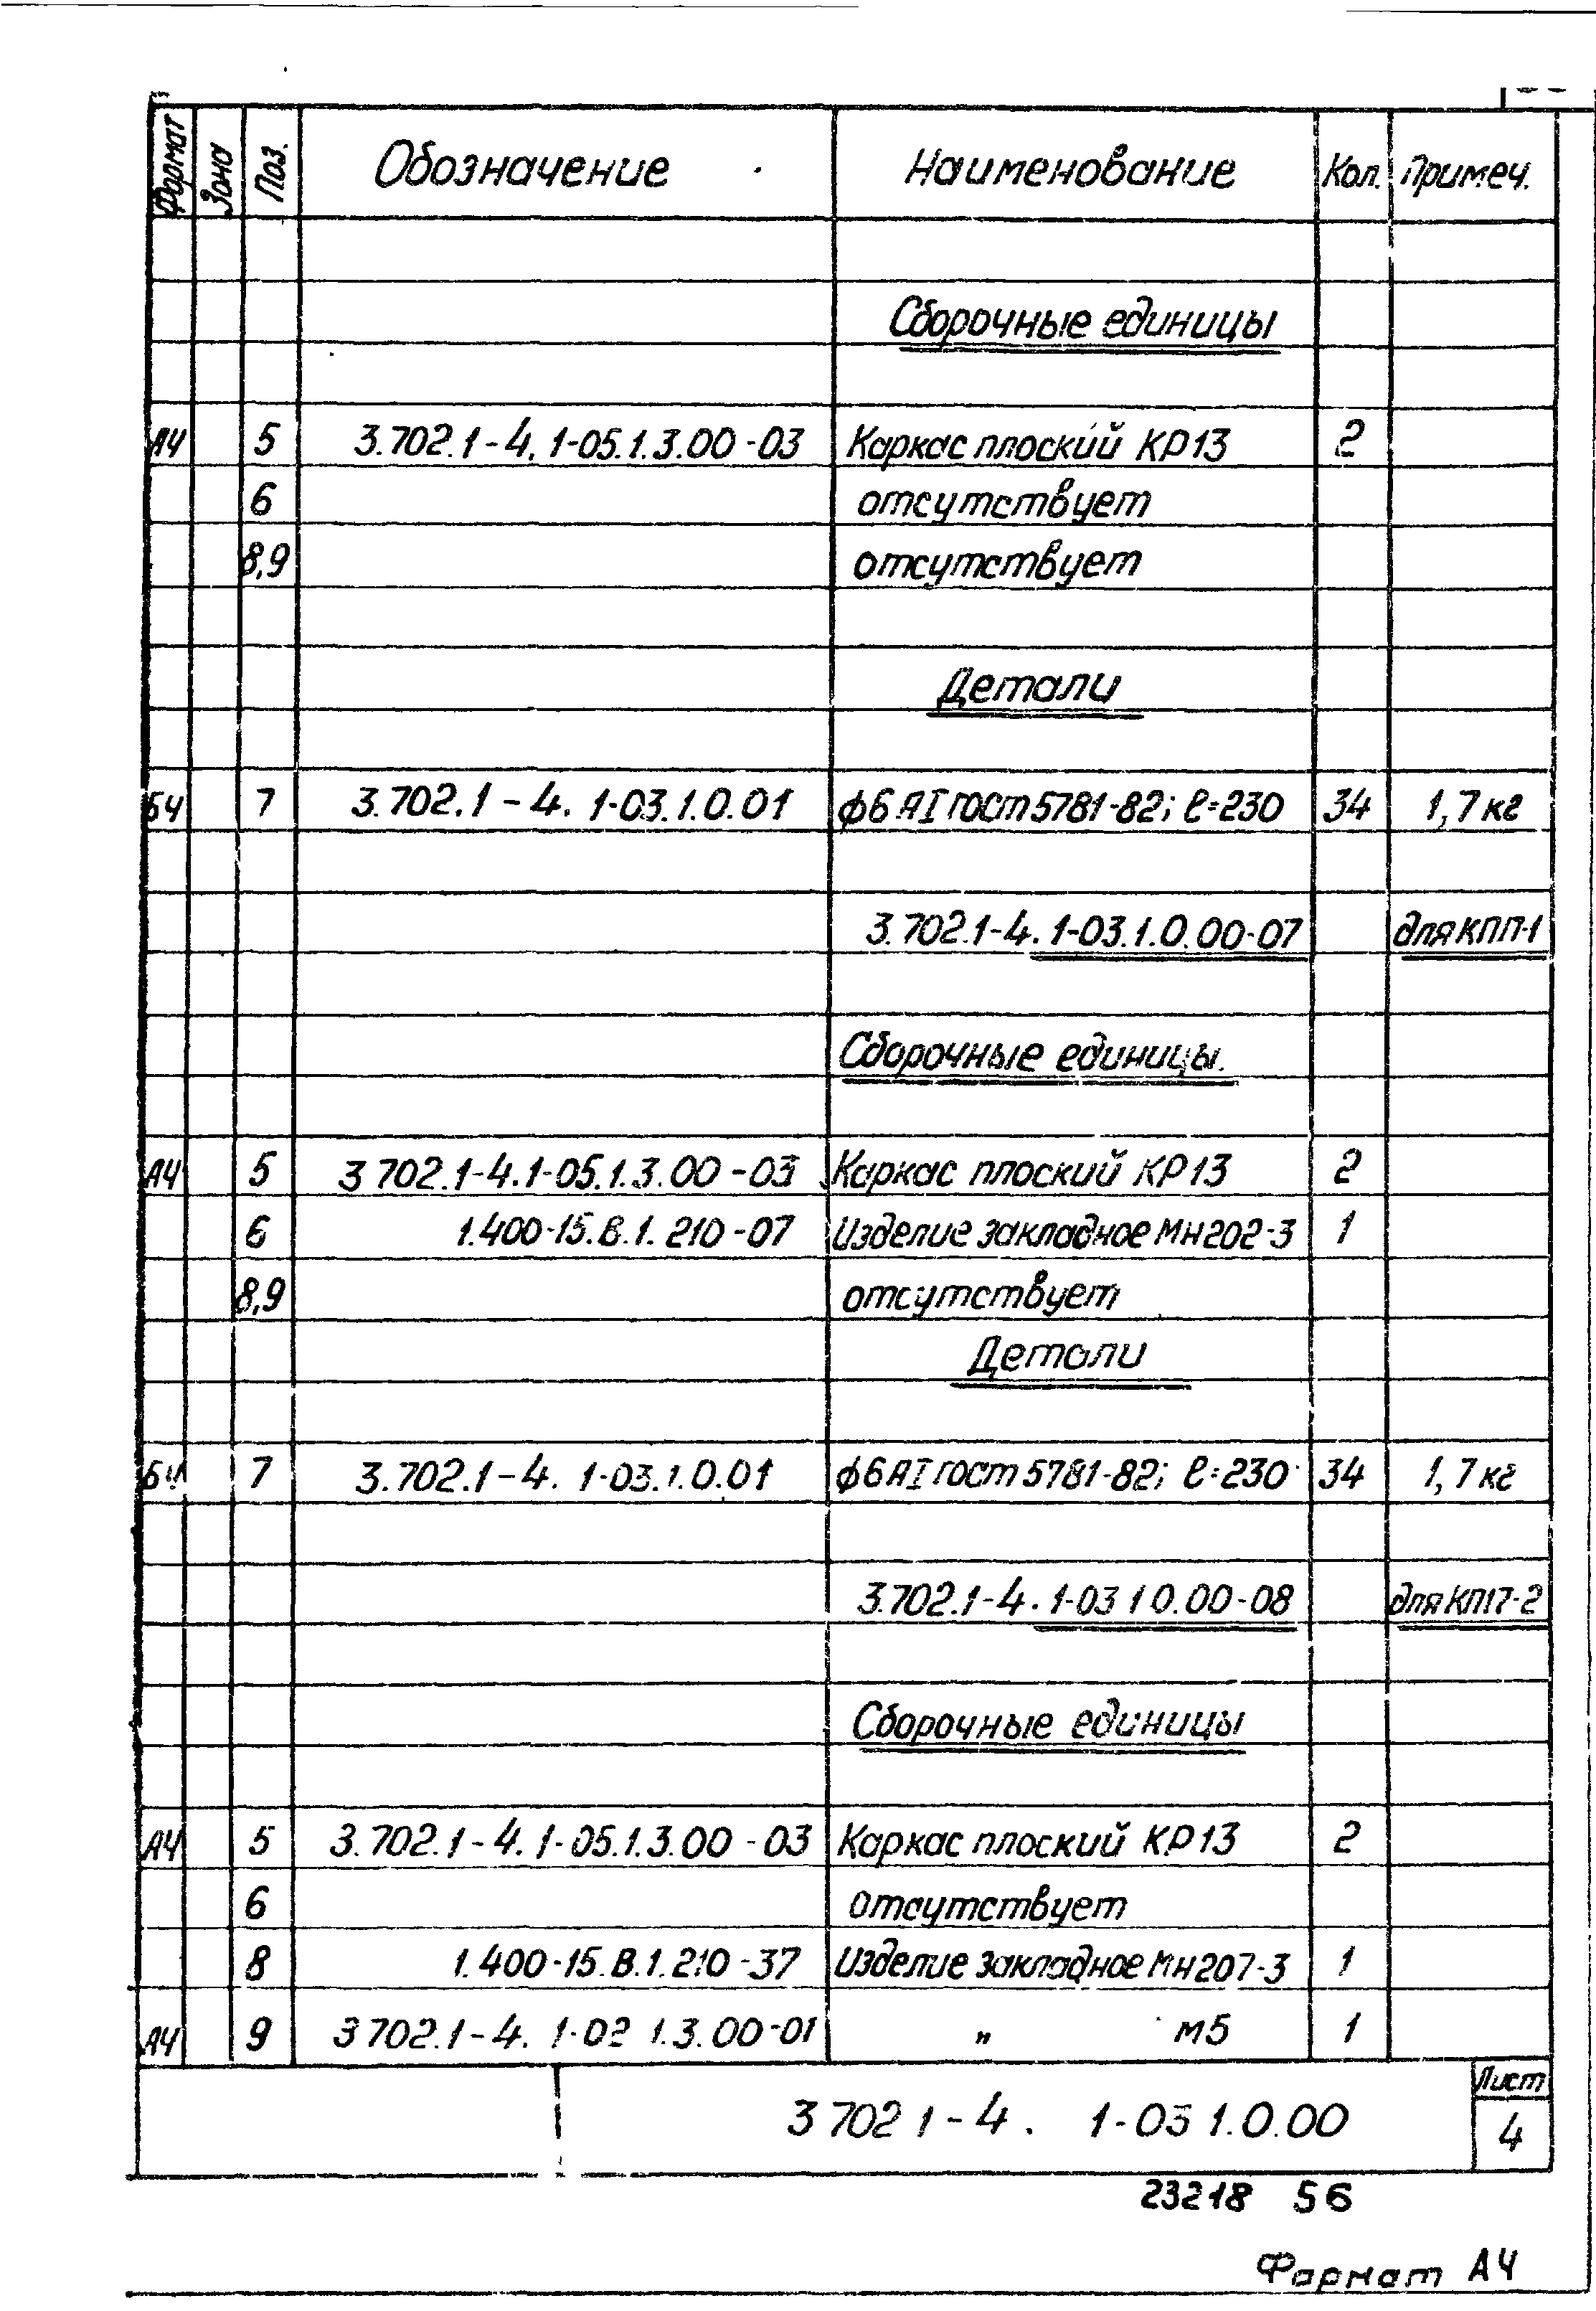 Формат Зона Поз. Обозначение Наименование Кол. Примеч.
Сборочные единицы
А4 5 3.702.1-4.1-05.1.3.00-03 Каркас плоский КР13 2
6 отсутствует
8,9 отсутствует
Детали
БЧ 7 3.702.1-4. 1-03.1.0.01 ф6 АI ГОСТ 5781-82; ℓ=230 34 1,7 кг
3.702.1-4.1-03.1.0.00-07 для КП17-1
Сборочные единицы.
А4 5 3 702.1-4.1-05.1.3.00-03 Каркас плоский КР13 2
6 1.400-15.В.1.210-07 Изделие закладное МН202-3 1
8,9 отсутствует
Детали
БЧ 7 3.702.1-4. 1-03.1.0.01 ф6 АI ГОСТ 5781-82; ℓ=230 34 1,7 кг
3.702.1-4.1-03 1 0.00-08 для КП17-2
Сборочные единицы
А4 5 3.702.1-4.1-05.1.3.00-03 Каркас плоский КР13 2
6 отсутствует
8 1.400-15.В.1.210-37 Изделие закладное МН207-3 1
А4 9 3 702.1-4. 1-02 1.3.00-01 " М5 1
3 702 1-4. 1-03 1.0.00
Лист
4
23218 56
Формат А4